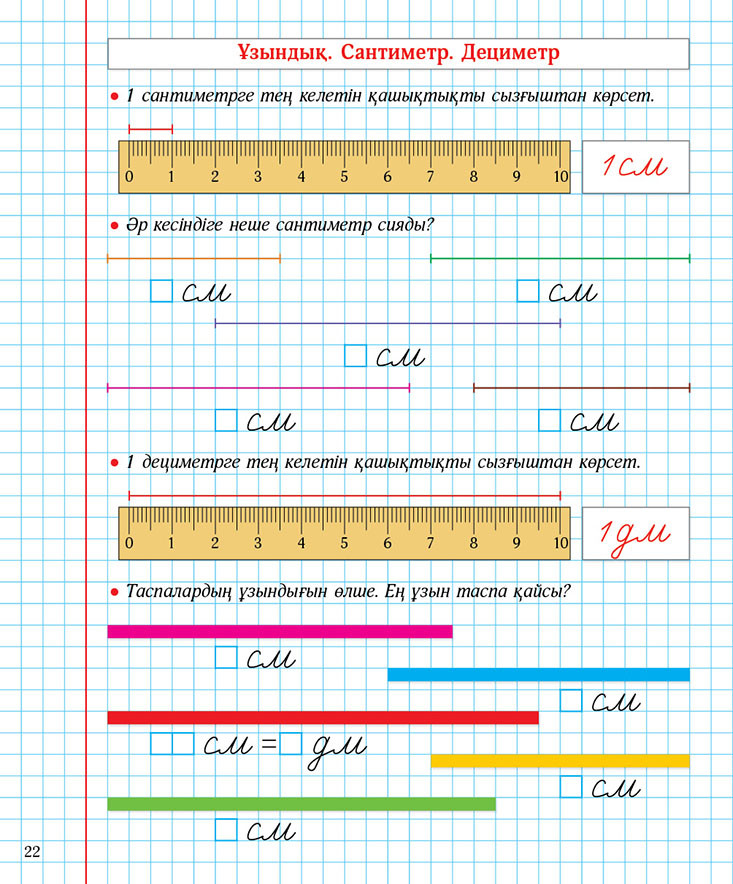 Ұзындық. Сантиметр. Дециметр
• 1 сантиметрге тең келетін қашықтықты сызғыштан көрсет.
0 1 2 3 4 5 6 7 8 9 10
1 см
• Әр кесіндіге неше сантиметр сияды?
см см
см
см см
• 1 дециметрге тең келетін қашықтықты сызғыштан көрсет.
0 1 2 3 4 5 6 7 8 9 10
1 дм
• Таспалардың ұзындығын өлше. Ең ұзын таспа қайсы?
см
см
см = дм
см
см
22